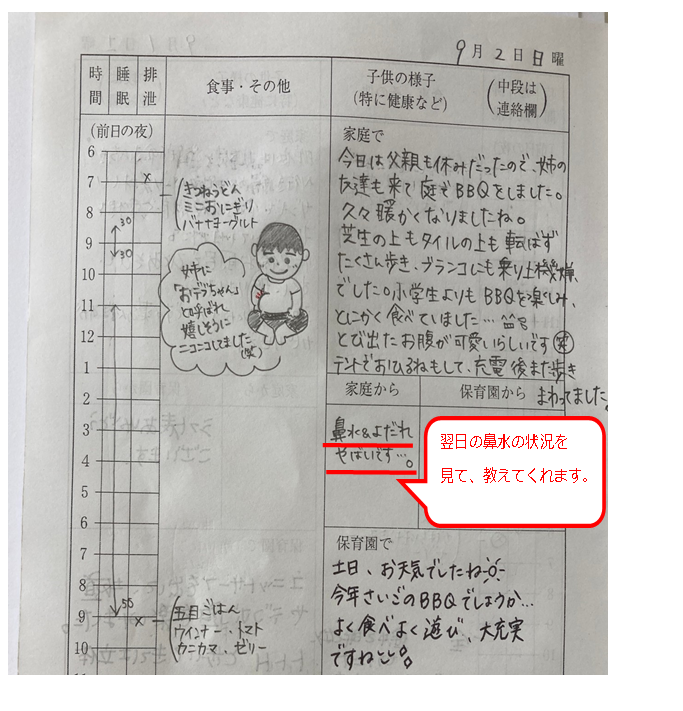 9月2日日曜
時間
睡眠
排泄
食事・その他
子供の様子
(特に健康など)
(中段は連絡欄)
(前日の夜)
6
7
8
9
10
11
12
1
2
3
4
5
6
7
8
9
10
×
30
30
50
×
きつねうどん
ミニおにぎり
バナナヨーグルト
姉に
「おデブちゃん」
と呼ばれ
嬉しそうに
ニコニコしてました
(笑)
五目ごはん
ウインナー、トマト
カニカマ、ゼリー
家庭で
今日は父親も休みだったので、姉の
友達も来て庭でBBQをしました。
久々暖かくなりましたね。
芝生の上もタイルの上も転ばず
たくさん歩き、ブランコにも乗り上機嫌
でした。小学生よりもBBQを楽しみ、
とにかく食べていました…
とび出たお腹が可愛いらしいです(笑)
テントでおひるねもして、充電後また歩き
まわってました。
家庭から
保育園から
鼻水&よだれ
やばいです…。
翌日の鼻水の状況を
見て、教えてくれます。
保育園で
土日、お天気でしたね
今年さいごのBBQでしょうか…
よく食べよく遊び、大充実
ですね